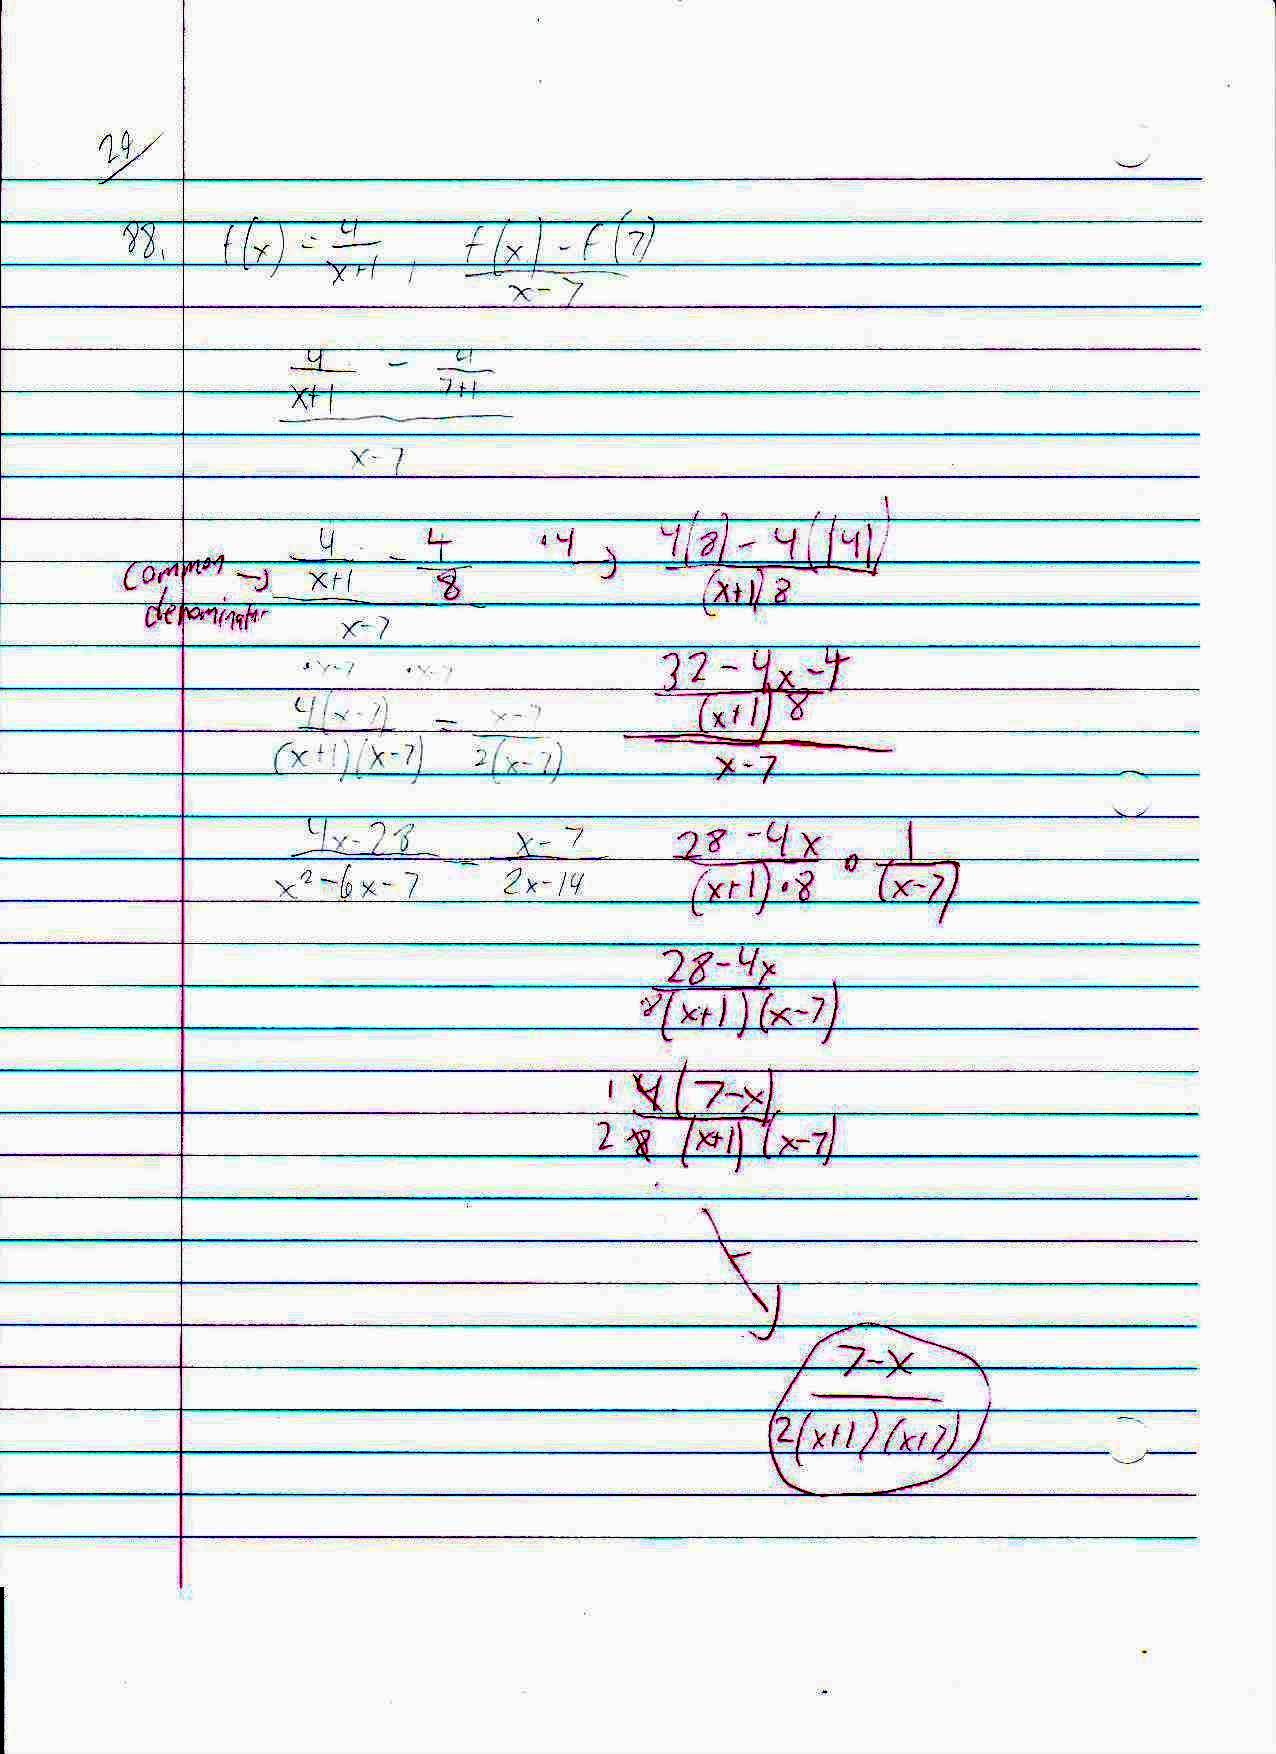 29/
88. f(x) = 4/(x+1), (f(x) - f(7))/(x-7)
(4/(x+1) - 4/(7+1))/(x-7)
common denominator → (4/(x+1) - 4/8)/(x-7) ·4 →
·x-7 ·x-7
4(x-7)/((x+1)(x-7)) = (x-7)/(2(x-7))
(4x-28)/(x²-6x-7) - (x-7)/(2x-14)
(x+1)8
(32-4x-4)/((x+1)8)/(x-7)
(28-4x)/((x+1)·8) · 1/(x-7)
(28-4x)/(8(x+1)(x-7))
1 4(7-x)/(2 8 (x+1)(x-7))
(7-x)/(2(x+1)(x+7))